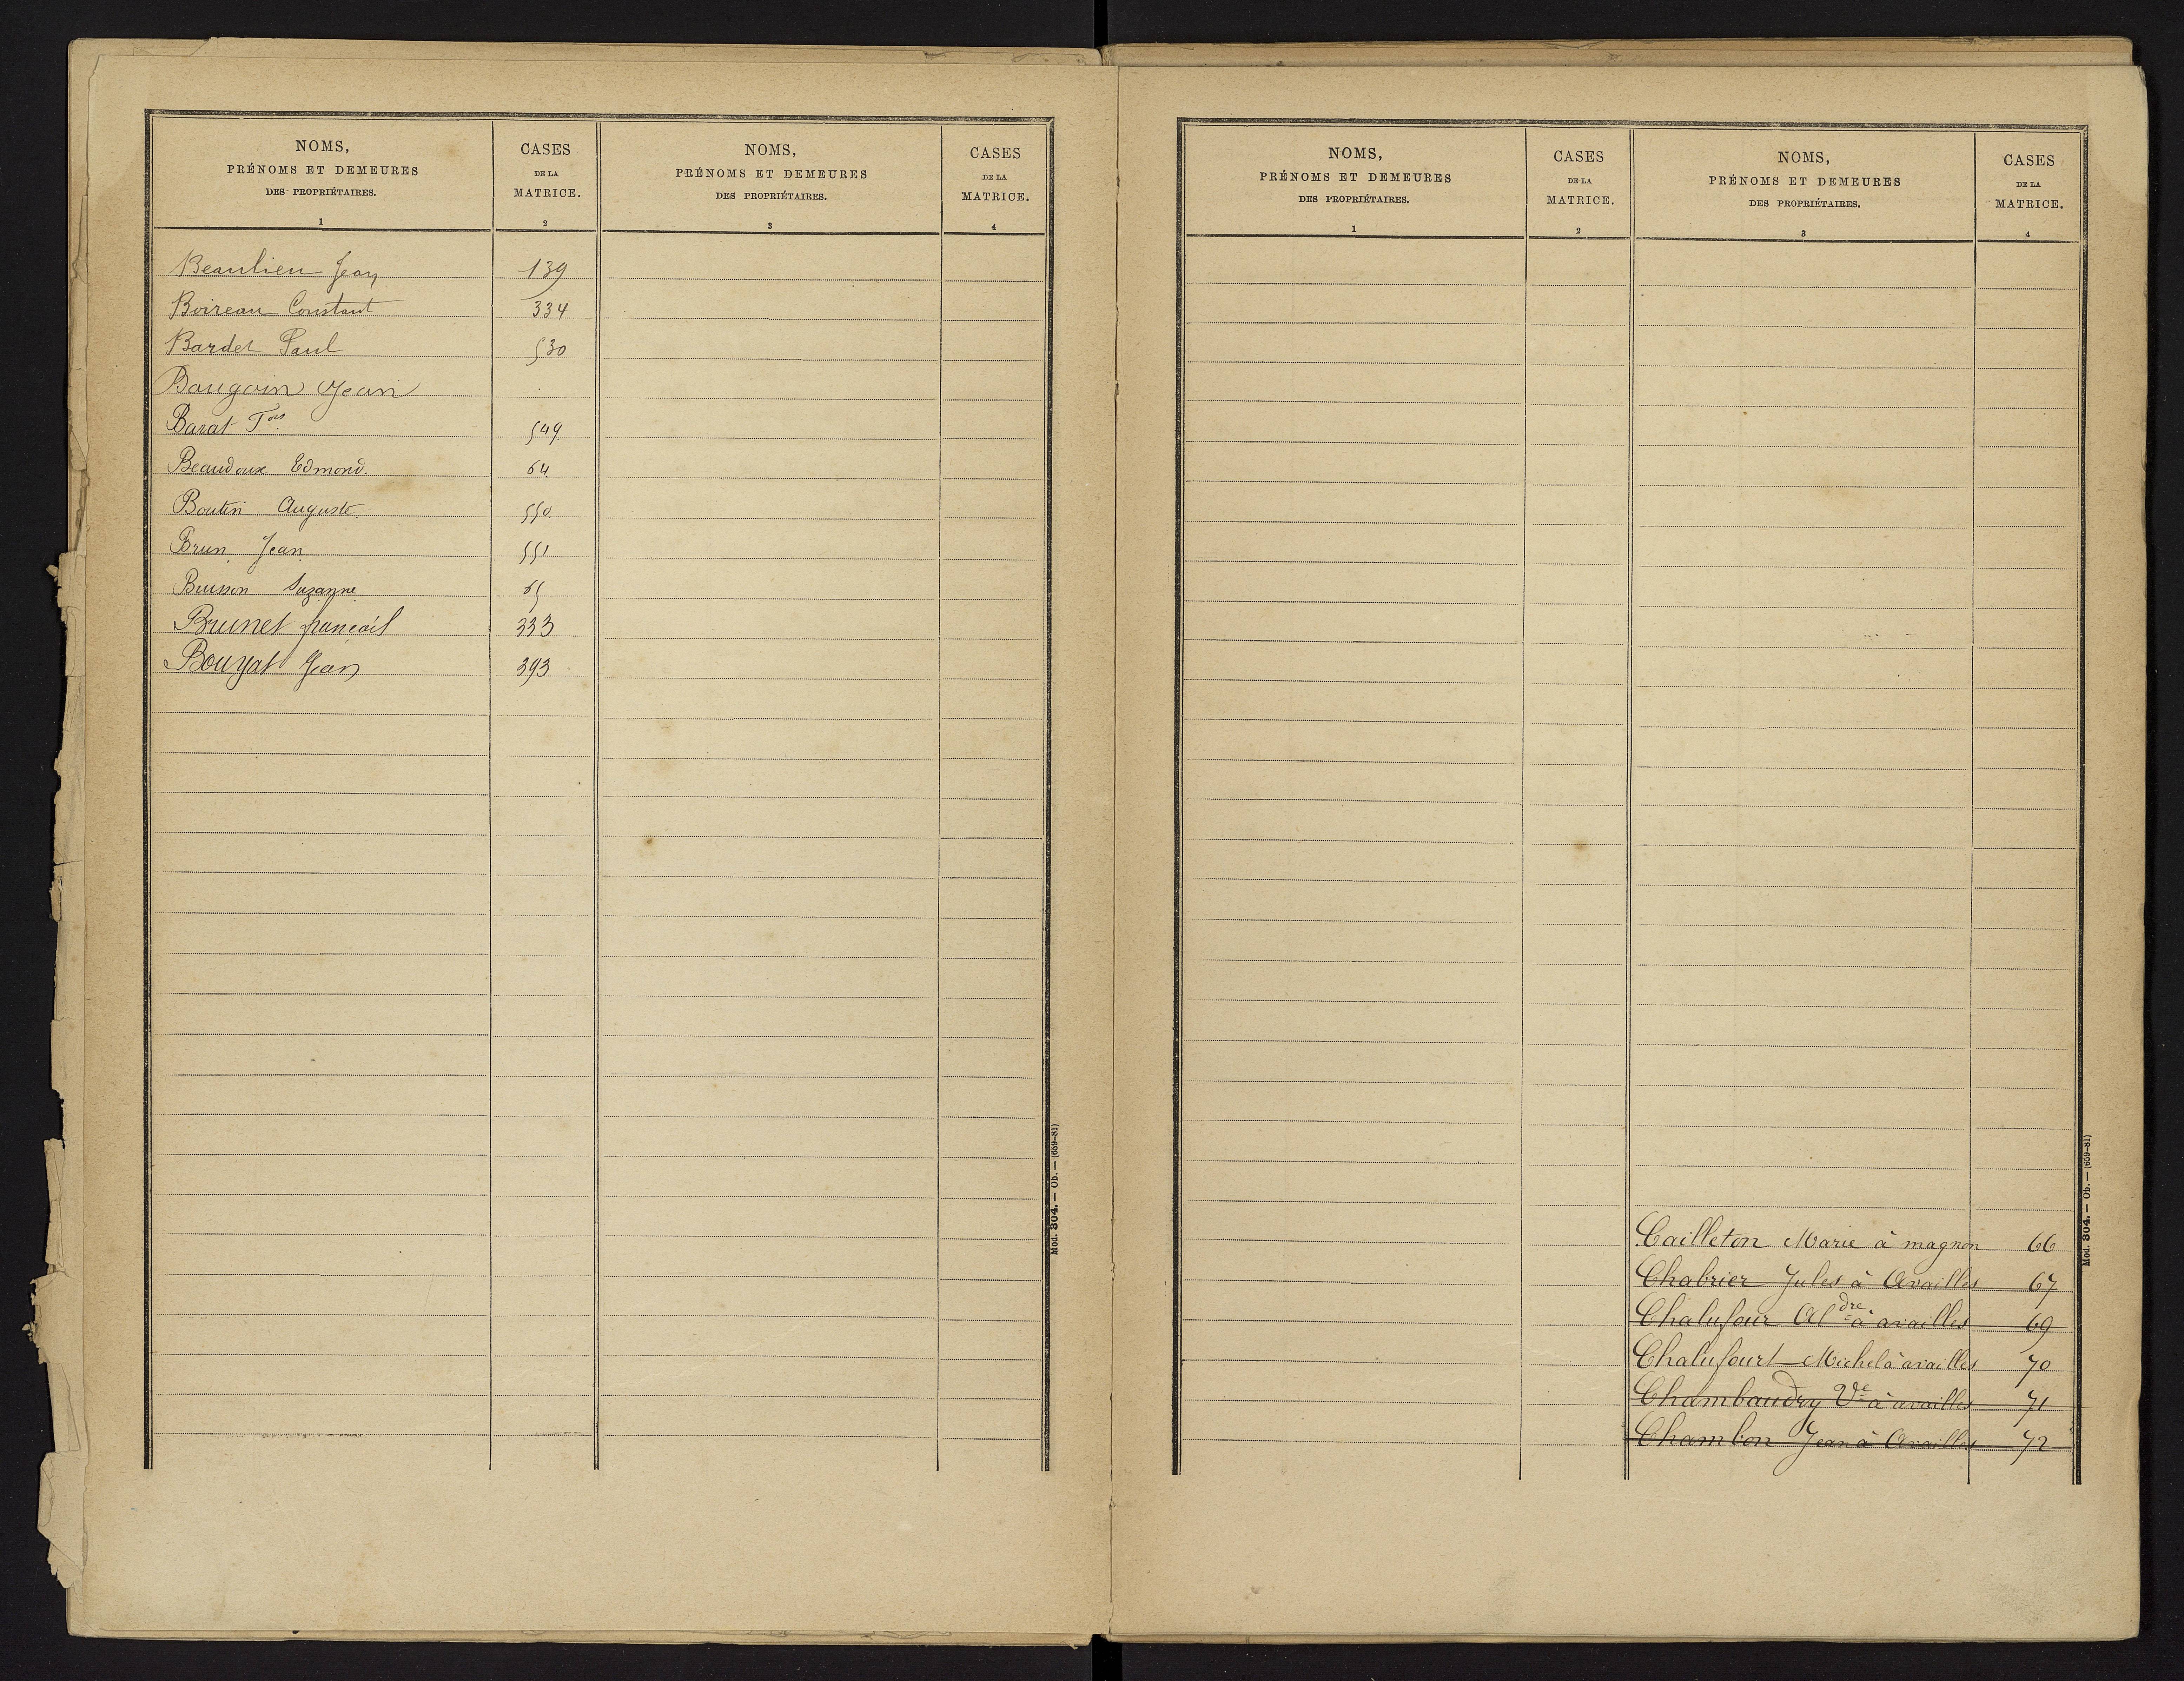 NOMS,
PRÉNOMS ET DEMEURES
DES PROPRIÉTAIRES.
1
CASES
DE LA
MATRICE.
2
NOMS,
PRÉNOMS ET DEMEURES
DES PROPRIÉTAIRES.
3
CASES
DE LA
MATRICE.
4
Beaulieu Jean 139
Boireau Constant 334
Bardet Paul 530
Baugoin Jean
Barat 549
Beaudoux Edmond. 64
Boutin Auguste 550
Brun Jean 551
Buisson Suzanne 65
Brunet françois 333
Bouyat Jean 393
Mod. 304. — Ob. — (659-81)
NOMS,
PRÉNOMS ET DEMEURES
DES PROPRIÉTAIRES.
1
CASES
DE LA
MATRICE.
2
NOMS,
PRÉNOMS ET DEMEURES
DES PROPRIÉTAIRES.
3
CASES
DE LA
MATRICE.
4
Cailleton Marie à magnon 66
Chabrier Jules à Availles 67
Chalufour Aldre à availles 69
Chalufourt Michel à availles 70
Chambaudry Ve à availles 71
Chambon Jean à Availles 72
Mod. 304. — Ob. — (659-81)